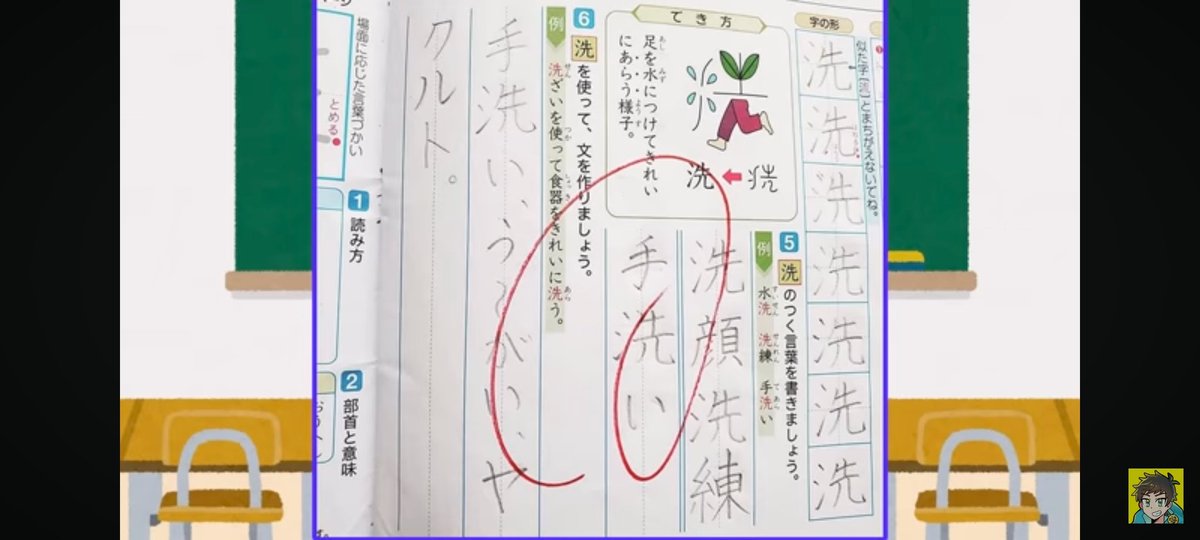 字の形
似た字「」とまちがえないでね。
洗
洗
洗
洗
洗
洗
洗
でき方
足を水につけてきれい
にあらう様子。
洗
5 洗のつく言葉を書きましょう。
例 水洗 洗練 手洗い
洗顔洗練
手洗い
6 洗を使って、文を作りましょう。
例 洗ざいを使って食器をきれいに洗う。
手洗い、うるがい、ヤ
クルト。
場面に応じた言葉づかい
とめる
1 読み方
2 部首と意味